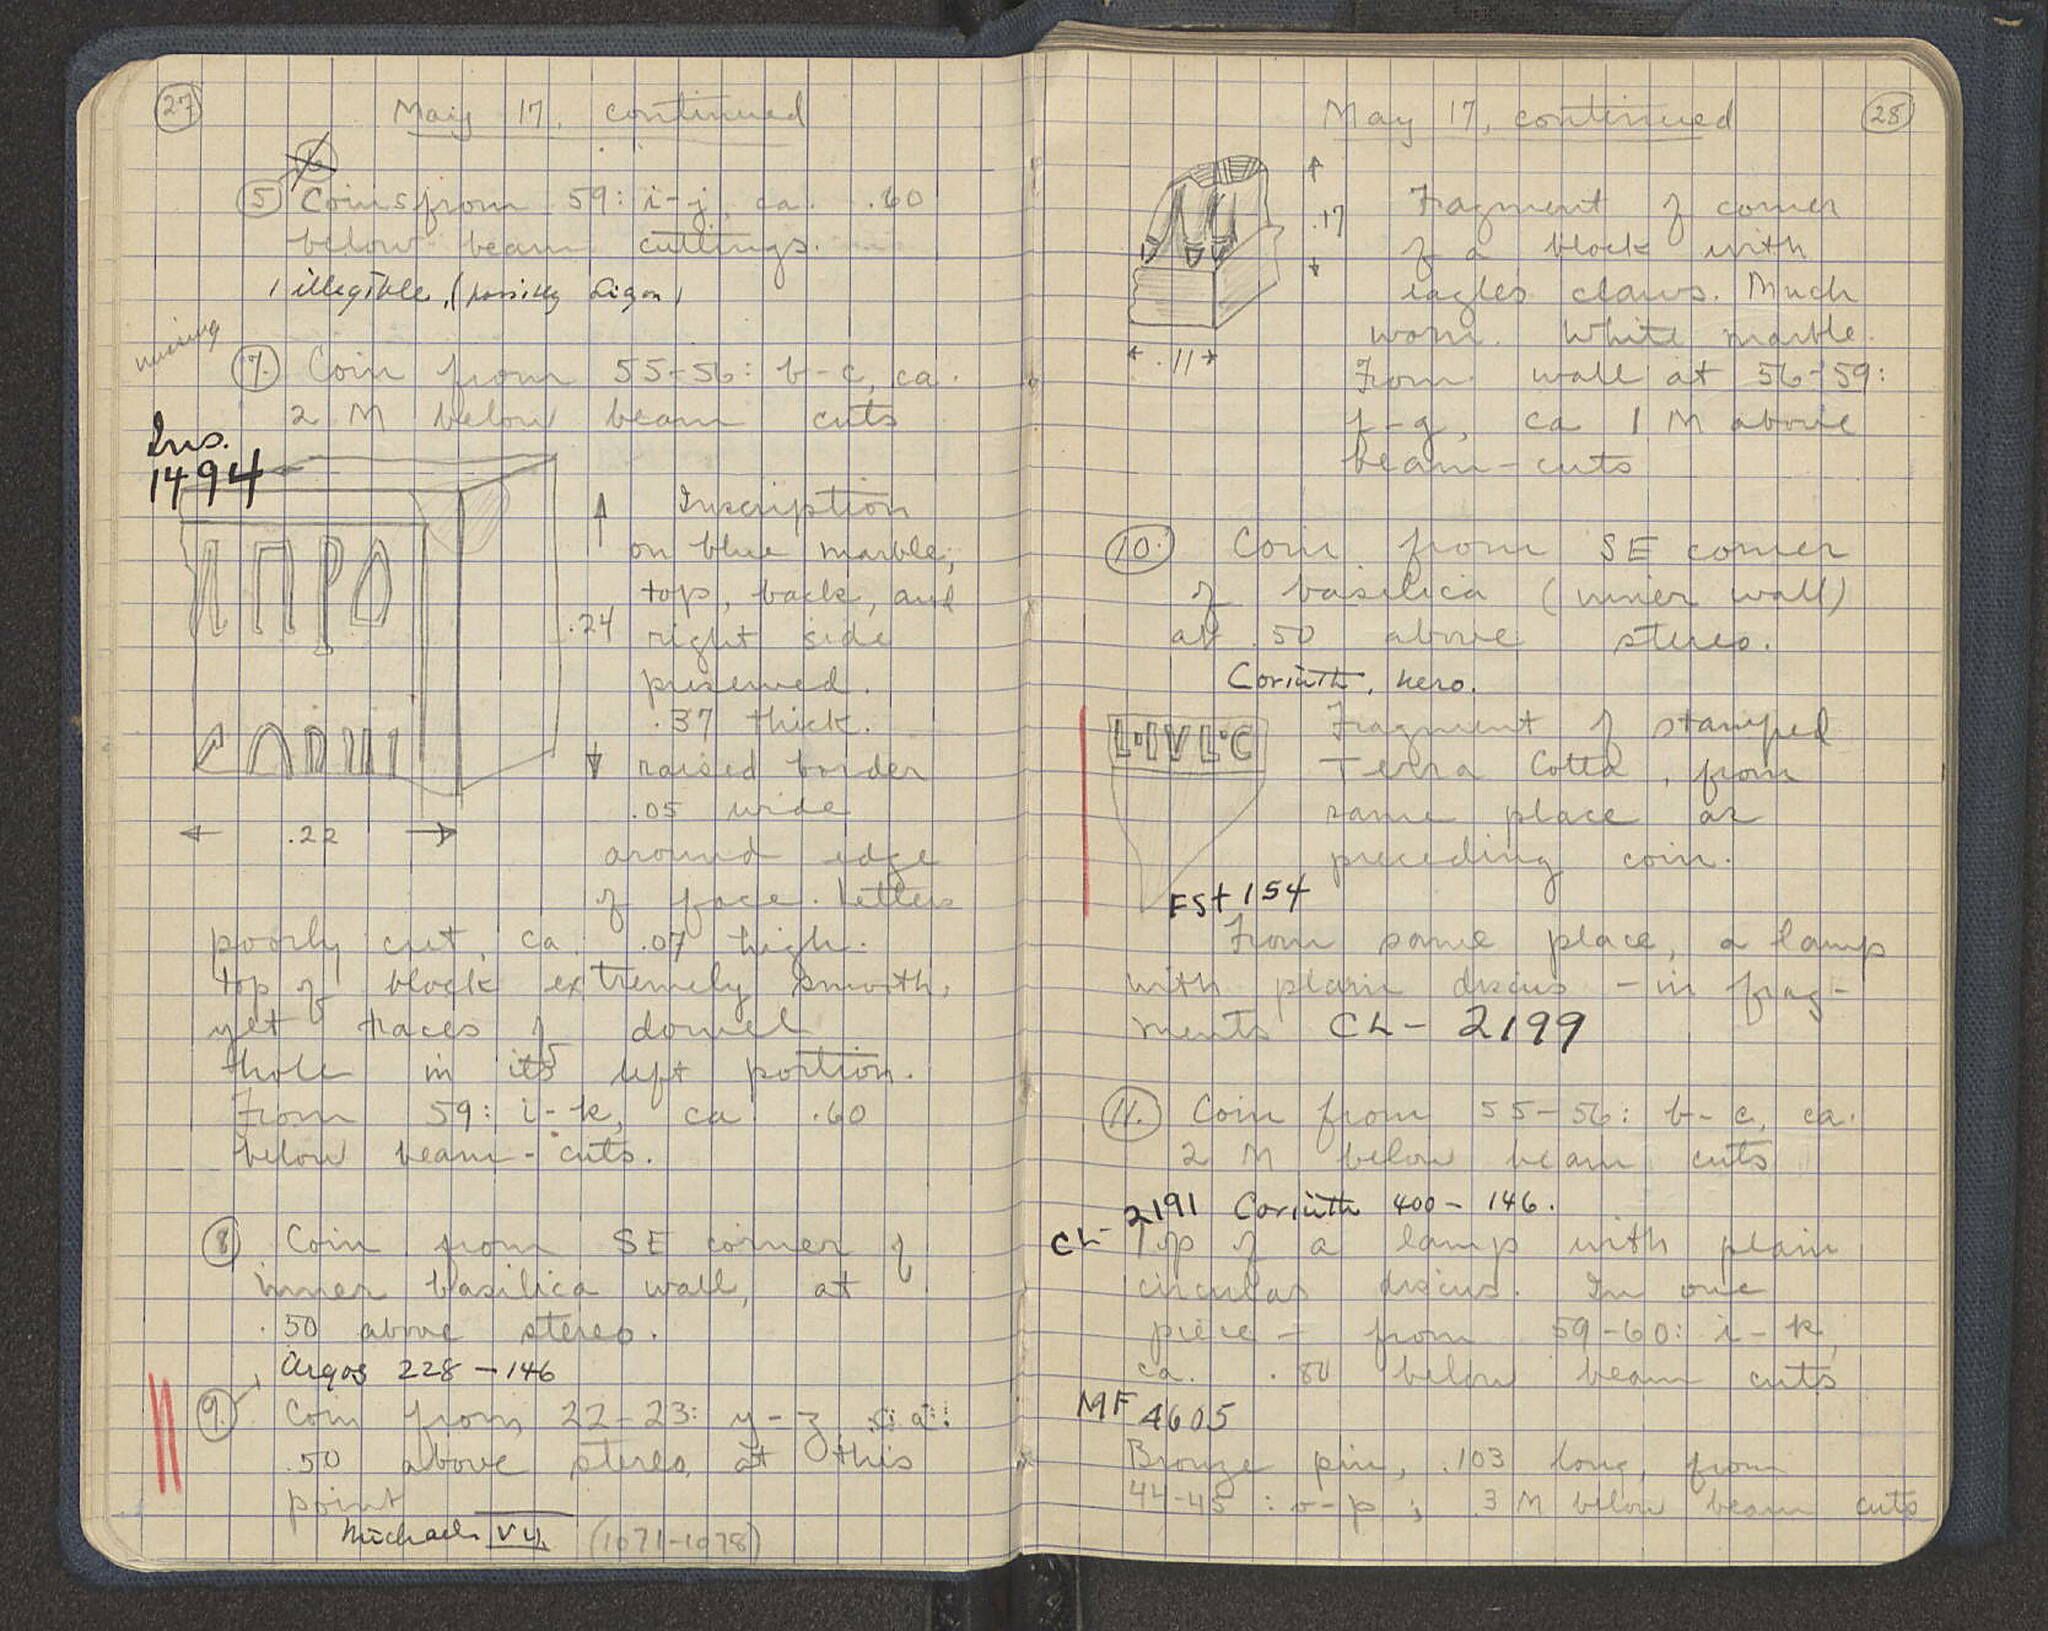 27
May 17, continued
6
5 Coins from 59: i-j, ca. .60
below beam cuttings.
1 illegible, (possibly Sigon)
missing
7. Coin from 55-56: b-c, ca.
2 M below beam cuts
Ins.
1494
ΛΠΡΟ
Inscription
on blue marble;
top, back, and
.24
right side
preserved.
.37 thick.
raised border
.05 wide
.22
around edge
of face. Letters
poorly cut, ca. .07 high.
Top of block extremely smooth,
yet traces of dowel
hole in its left portion.
From 59: i-k, ca .60
below beam-cuts.
8 Coin from SE corner of
inner basilica wall, at
.50 above stereo.
Argos 228-146
9. Coin from 22-23: y-z ca.
.50 above stereo at this
point
Michael VII (1071-1078)
May 17, continued
28
.17
Fragment of corner
of a block with
eagles claws. Much
worn. White marble.
.11
From wall at 56-59:
f-g, ca 1 M above
beam-cuts
10. Coin from SE corner
of basilica (inner wall)
at .50 above stereo.
Corinth, Nero.
L·IVL·C
Fragment of stamped
Terra Cotta, from
same place as
preceding coin.
FSt 154
From same place, a lamp
with plain discus - in frag-
ments CL- 2199
11. Coin from 55-56: b-c, ca.
2 M below beam cuts
Corinth 400-146.
CL- 2191
Top of a lamp with plain
circular discus. In one
piece - from 59-60: i-k,
ca. .80 below beam cuts
MF 4605
Bronze pin, .103 long, from
44-45: o-p; .3 M below beam cuts